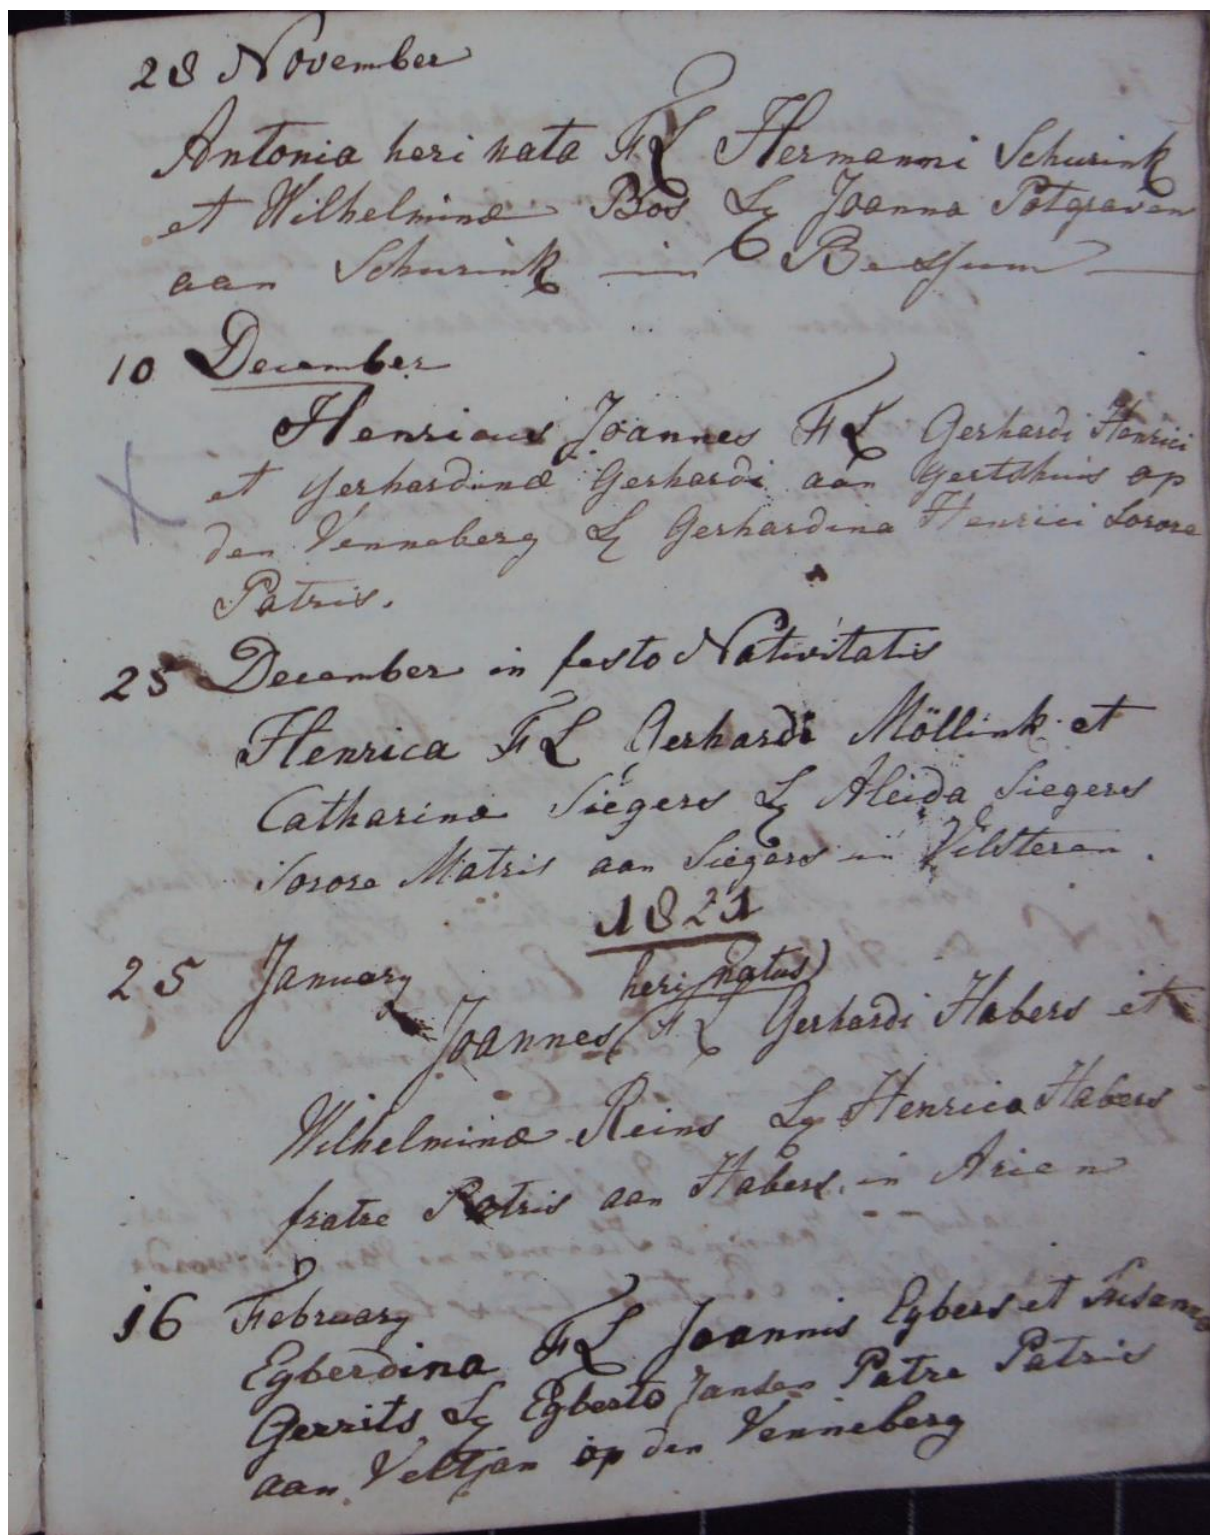 28 November
Antonia heri nata FL Hermanni Schurink
et Wilhelminæ Bos Lg Joanna Potgraven
aan Schurink in Bessum
10 December
Henricus Joannes FL Gerhardi Henrici
et Gerhardinæ Gerhardi aan Gertshuis op
den Venneberg Lg Gerhardina Henrici Sorore
Patris.
25 December in festo Nativitatis
Henrica FL Gerhardi Möllink et
Catharinæ Siegers Lg Aleida Siegers
Sorore Matris aan Siegers in Vilsteren.
1821
25 January
heri natus)
Joannes( FL Gerhardi Habers et
Wilhelminæ Reins Lg Henrico Habers
fratre Patris aan Habers in Arien
16 February
Egberdina FL Joannis Egbers et Susanna
Gerrits Lg Egberto Jansen Patre Patris
aan Veltjan op den Venneberg